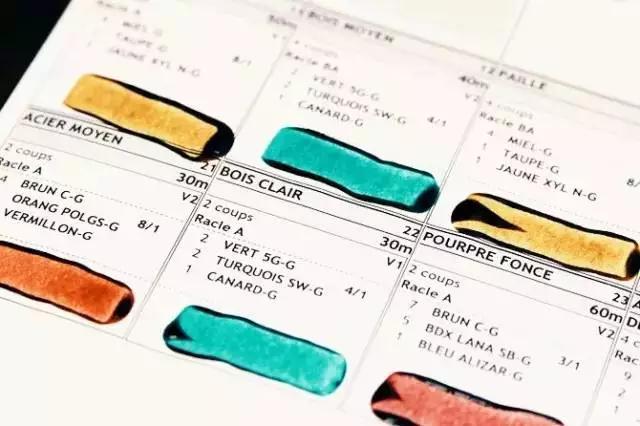 11 BOIS MOYEN
12 PAILLE
Racle A
4 MIEL-G
1 TAUPE-G 8/1
1 JAUNE XYL N-G
30m
V2
4 coups
Racle BA
2 VERT 5G-G
2 TURQUOIS SW-G 4/1
1 CANARD-G
40m
V2
4 coups
Racle BA
4 MIEL-G
1 TAUPE-G 8/1
1 JAUNE XYL N-G
ACIER MOYEN 21
2 coups 30m
Racle A V2
4 BRUN C-G
ORANG POLGS-G 8/1
VERMILLON-G
BOIS CLAIR 22
2 coups 30m
Racle A V1
2 VERT 5G-G
2 TURQUOIS SW-G 4/1
1 CANARD-G
POURPRE FONCE 23
2 coups 60m
Racle A V2
7 BRUN C-G
5 BDX LANA SB-G 3/1
1 BLEU ALIZAR-G